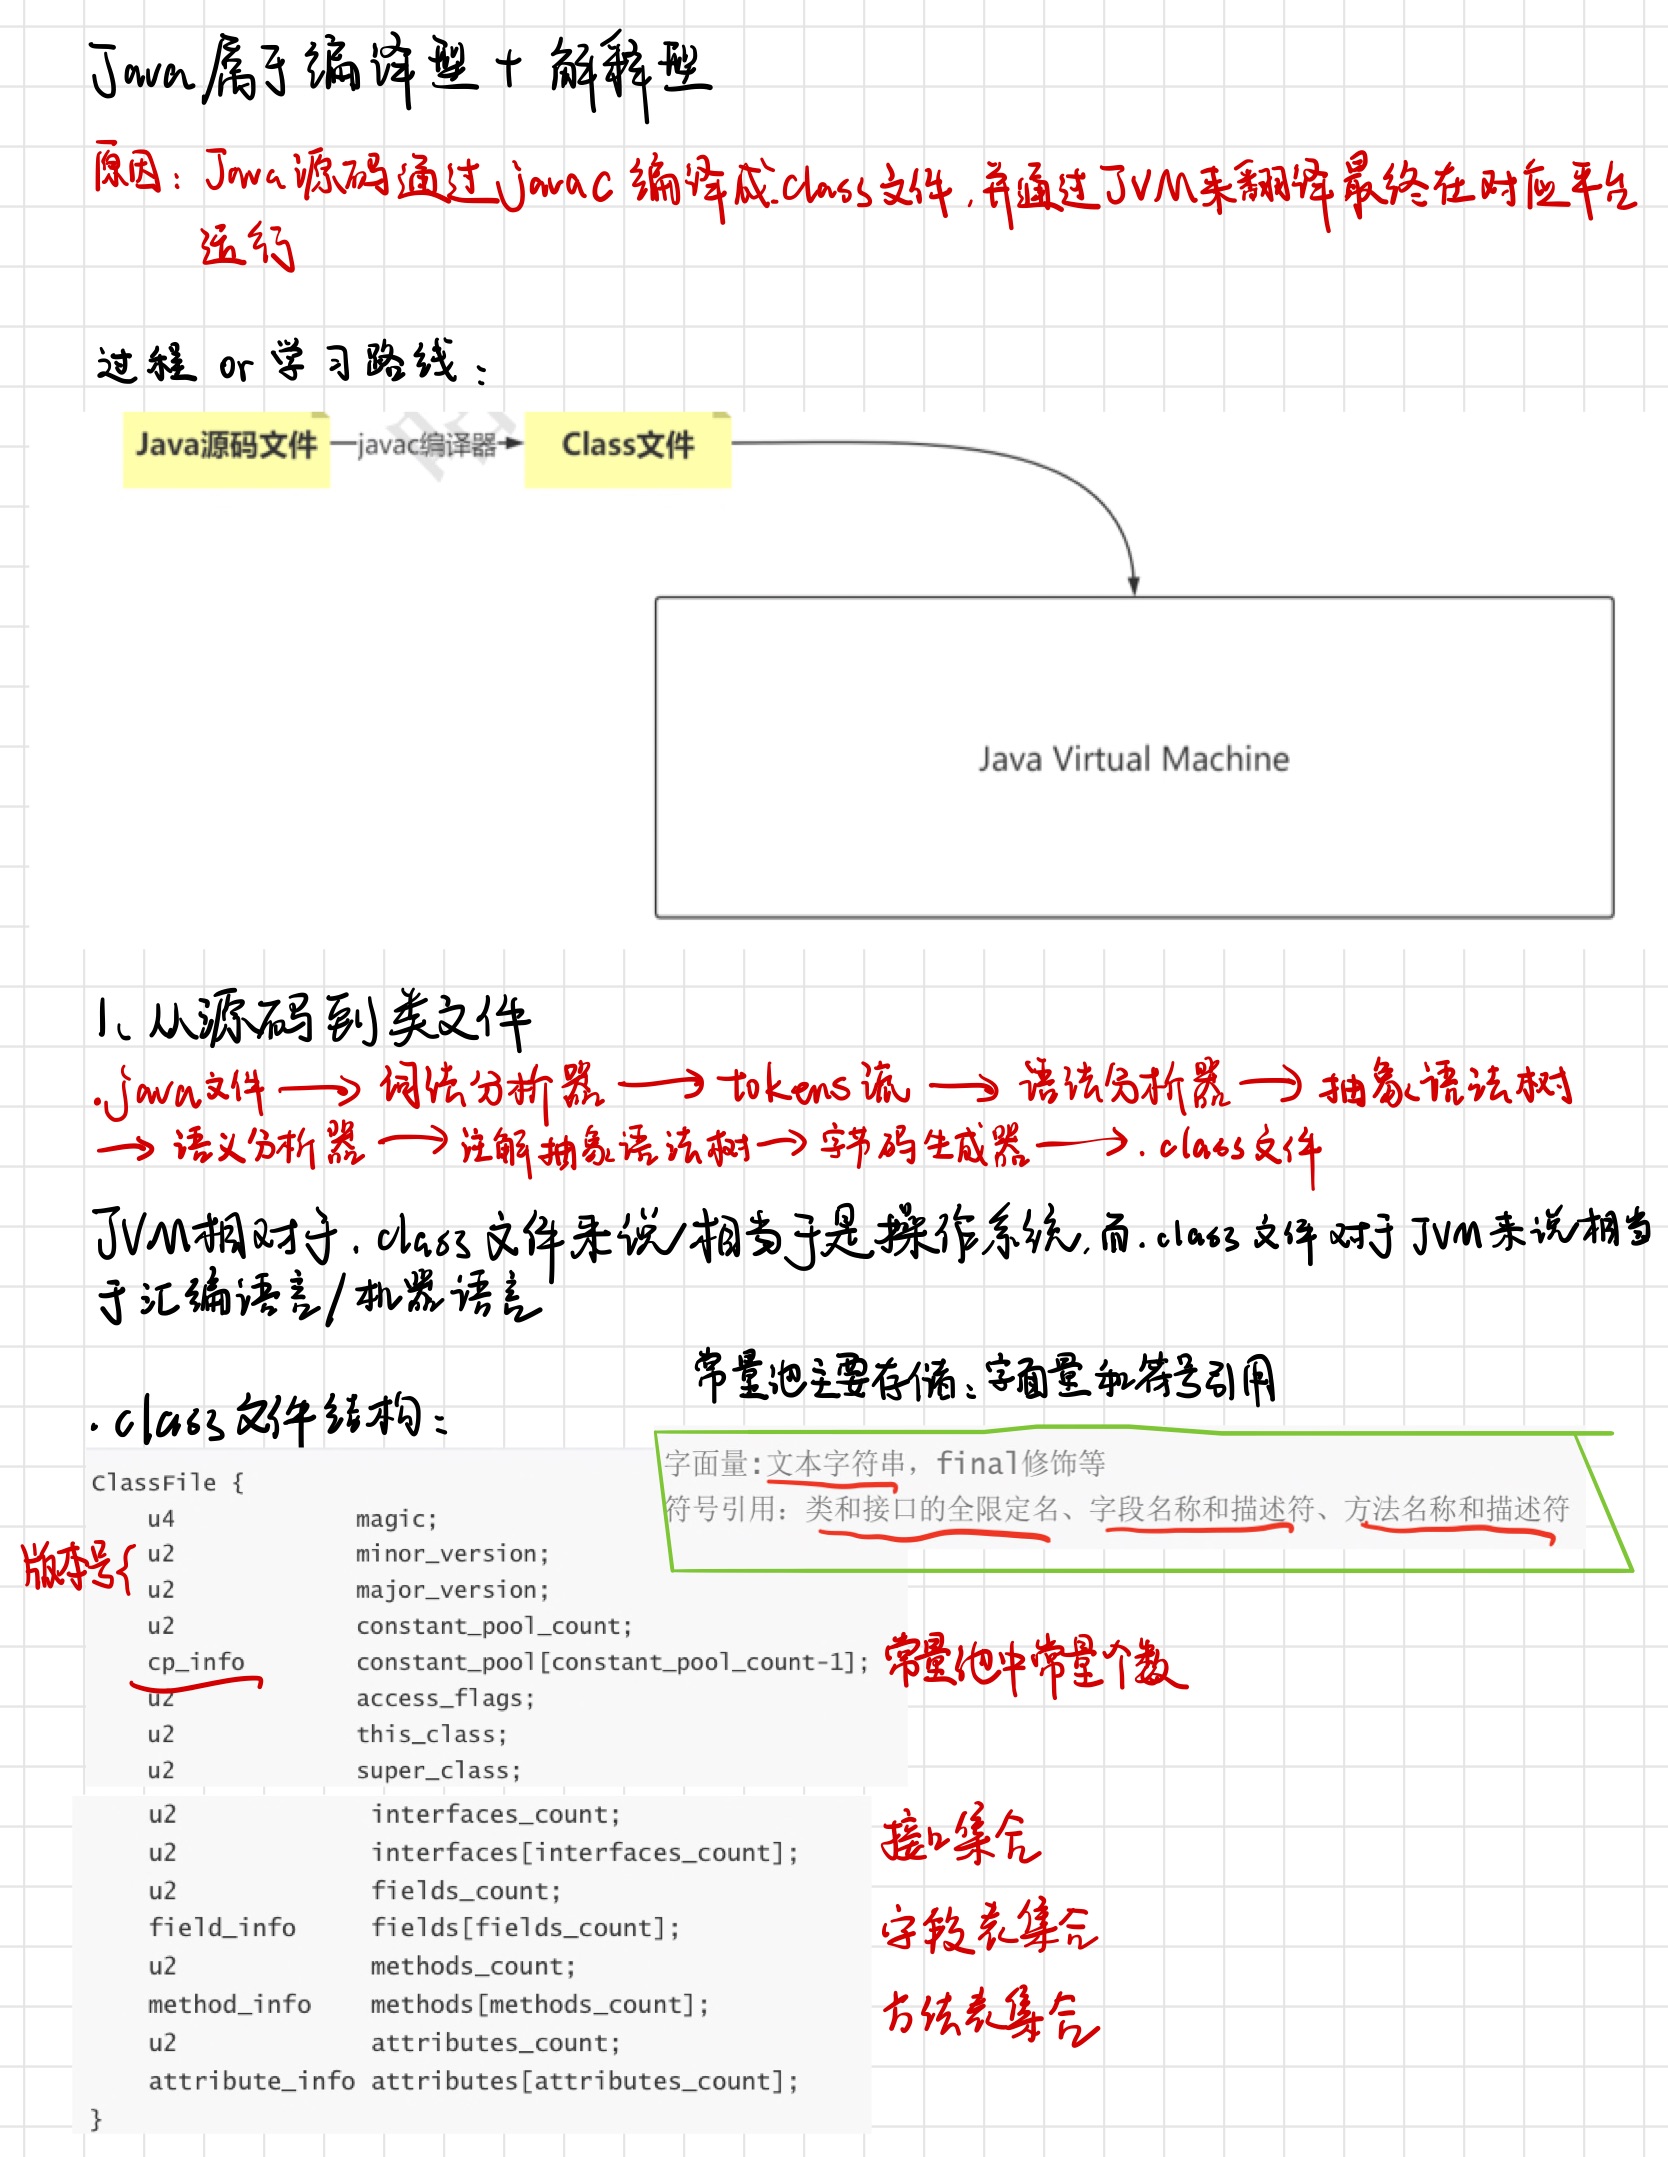 Java属于编译型 + 解释型
原因：Java源码通过javac编译成.class文件,并通过JVM来翻译最终在对应平台
运行
过程 or 学习路线：
Java源码文件 javac编译器 Class文件
Java Virtual Machine
1、从源码到类文件
.java文件 → 词法分析器 → tokens流 → 语法分析器 → 抽象语法树
→ 语义分析器 → 注解抽象语法树 → 字节码生成器 → .class文件
JVM相对于.class文件来说相当于是操作系统,而.class文件对于JVM来说相当
于汇编语言/机器语言
常量池主要存储：字面量和符号引用
.class文件结构：
字面量:文本字符串，final修饰等
符号引用：类和接口的全限定名、字段名称和描述符、方法名称和描述符
ClassFile {
u4 magic;
版本号{ u2 minor_version;
u2 major_version;
u2 constant_pool_count;
cp_info constant_pool[constant_pool_count-1]; 常量池中常量个数
u2 access_flags;
u2 this_class;
u2 super_class;
u2 interfaces_count;
u2 interfaces[interfaces_count]; 接口集合
u2 fields_count;
field_info fields[fields_count]; 字段表集合
u2 methods_count;
method_info methods[methods_count]; 方法表集合
u2 attributes_count;
attribute_info attributes[attributes_count];
}